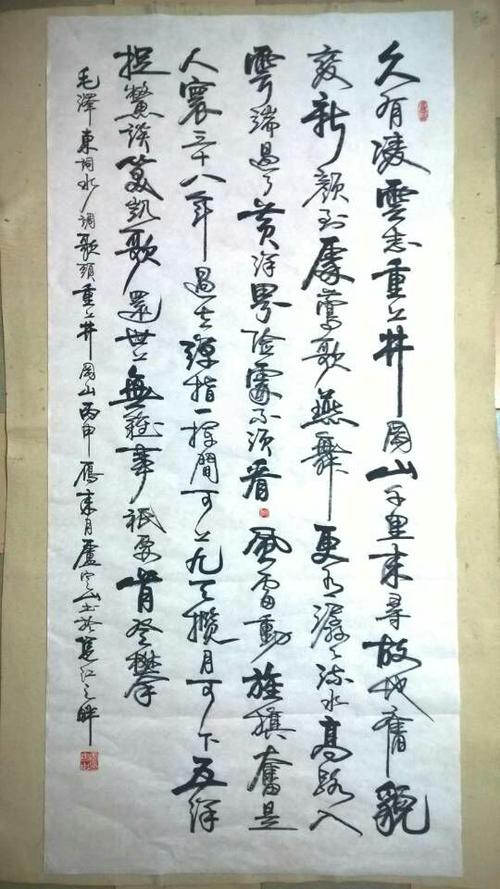 久有凌雲志重上井岡山千里来尋故地舊貌
變新顏到處鶯歌燕舞更有潺々流水高路入
雲端過了黄洋界險處不須看風雷動旌旗奮是
人寰三十八年過去彈指一揮間可上九天攬月可下五洋
捉鱉談笑凱歌還世上無難事祇要肯登攀
毛澤東詞水調歌頭重上井岡山丙申雁来月盧山书於江之畔